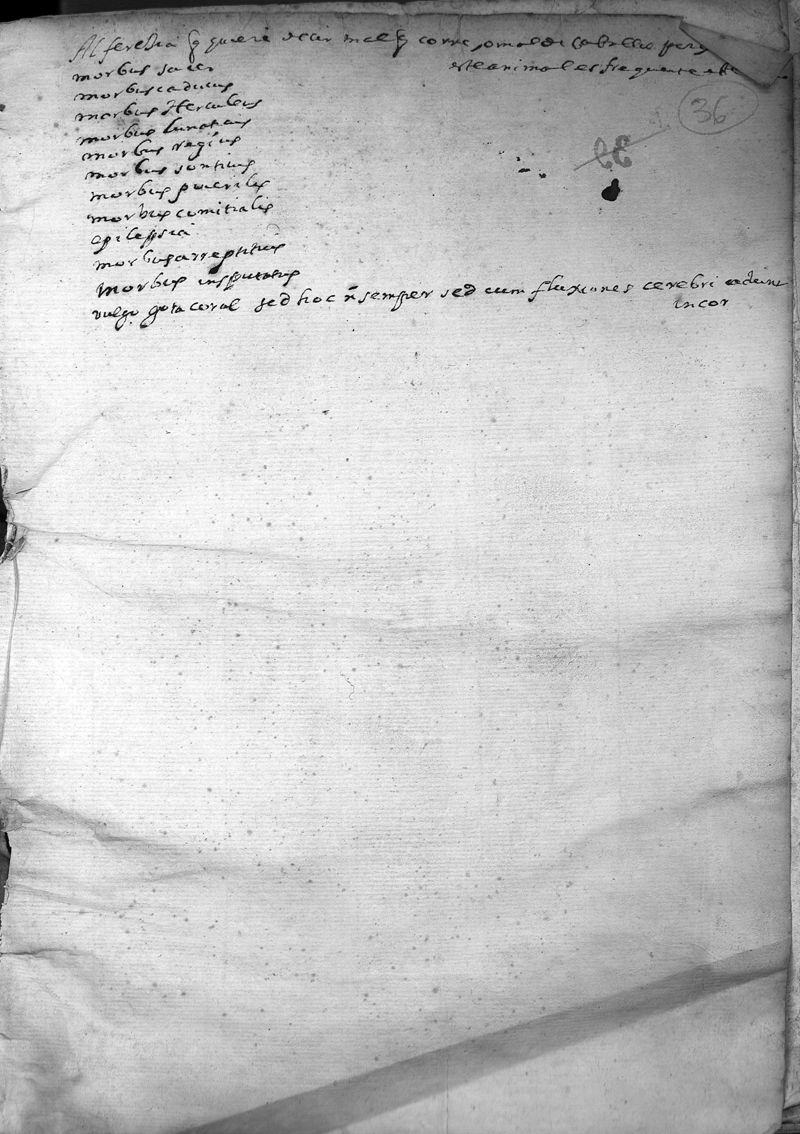 Alferesia q quiere decir mal q corre, o mal de caballo, porq
este animal es frequente
morbus sacer
morbus caducus
morbus Herculeus
morbus lunaticus
morbus regius
morbus sonticus
morbus puerilis
morbus comitialis
epilepsia
morbus arreptitius
morbus insputatus
vulgo gota coral sed hoc ñ semper sed cum fluxiones cerebri
in cor
36